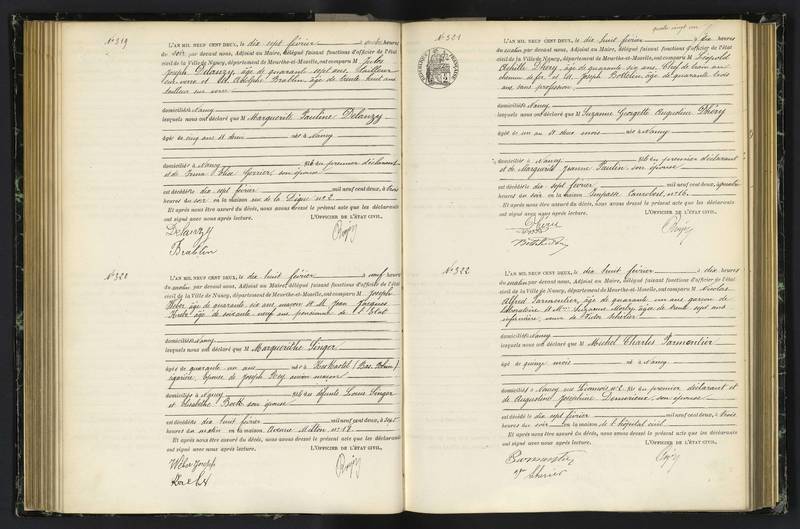 N° 319
L'AN MIL NEUF CENT DEUX, le dix sept février à onze heures
du soir par devant nous, Adjoint au Maire, délégué faisant fonctions d'officier de l'état
civil de la Ville de Nancy, département de Meurthe-et-Moselle, ont comparu M Jules
Joseph Delanzy, âge de quarante sept ans, tailleur
sur verre et Adolphe Brablin, âge de trente huit ans
tailleur sur verre
domiciliés Nancy
lesquels nous ont déclaré que M Marguerite Pauline Delanzy
âgée de cinq ans et demi née à Nancy
domiciliée à Nancy fille du premier déclarant
et de son épouse
est décédée le dix sept février mil neuf cent deux, à trois
heures du soir en la maison rue de la Digue n° 2
Et après nous être assuré du décès, nous avons dressé le présent acte que les déclarants
ont signé avec nous après lecture. L'OFFICIER DE L'ÉTAT CIVIL,
Delanzy
Brablin
N° 320
L'AN MIL NEUF CENT DEUX, le dix huit février à neuf heures
du matin par devant nous, Adjoint au Maire, délégué faisant fonctions d'officier de l'état
civil de la Ville de Nancy, département de Meurthe-et-Moselle, ont comparu M Joseph
Weber, âgé de quarante six ans, maçon et M. Jean Jacques
âgé de soixante neuf ans pensionné de l'État
domiciliés Nancy
lesquels nous ont déclaré que M Marguerithe Singer
âgée de quarante un ans née à (Bas Rhin)
épouse de Joseph maçon
domiciliée à Nancy fille de défunts Louis Singer
et Elisabethe Boeck son épouse
est décédée le dix huit février mil neuf cent deux, à sept
heures du matin en la maison Avenue Milton n° 18
Et après nous être assuré du décès, nous avons dressé le présent acte que les déclarants
ont signé avec nous après lecture. L'OFFICIER DE L'ÉTAT CIVIL,
Weber Joseph
N° 321
L'AN MIL NEUF CENT DEUX, le dix huit février à dix heures
du matin par devant nous, Adjoint au Maire, délégué faisant fonctions d'officier de l'état
civil de la Ville de Nancy, département de Meurthe-et-Moselle, ont comparu M Léopold
Achille Théry, âgé de quarante six ans, Chef de train au
chemin de fer et M. Joseph âgé de quarante trois
ans, sans profession
domiciliés Nancy
lesquels nous ont déclaré que M Suzanne Georgette Augustine Théry
âgée de un an et deux mois née à Nancy
domiciliée à Nancy fille du premier déclarant
et de Marguerite Jeanne Paulin son épouse
est décédée le dix sept février mil neuf cent deux, à quatre
heures du soir en la maison Impasse n° 16
Et après nous être assuré du décès, nous avons dressé le présent acte que les déclarants
ont signé avec nous après lecture. L'OFFICIER DE L'ÉTAT CIVIL,
N° 322
L'AN MIL NEUF CENT DEUX, le dix huit février à dix heures
du matin par devant nous, Adjoint au Maire, délégué faisant fonctions d'officier de l'état
civil de la Ville de Nancy, département de Meurthe-et-Moselle, ont comparu M Nicolas
Alfred Parmentier, âgé de quarante un ans garçon de
laboratoire et Mme Suzanne âgée de trente sept ans
infirmière, veuve de Victor
domiciliés Nancy
lesquels nous ont déclaré que M Michel Charles Parmentier
âgé de quinze mois né à Nancy
domicilié à Nancy rue n° 2 fils du premier déclarant et
de Augustine Joséphine son épouse
est décédé le dix sept février mil neuf cent deux, à trois
heures du soir en la maison de l'hôpital civil
Et après nous être assuré du décès, nous avons dressé le présent acte que les déclarants
ont signé avec nous après lecture. L'OFFICIER DE L'ÉTAT CIVIL,
Parmentier